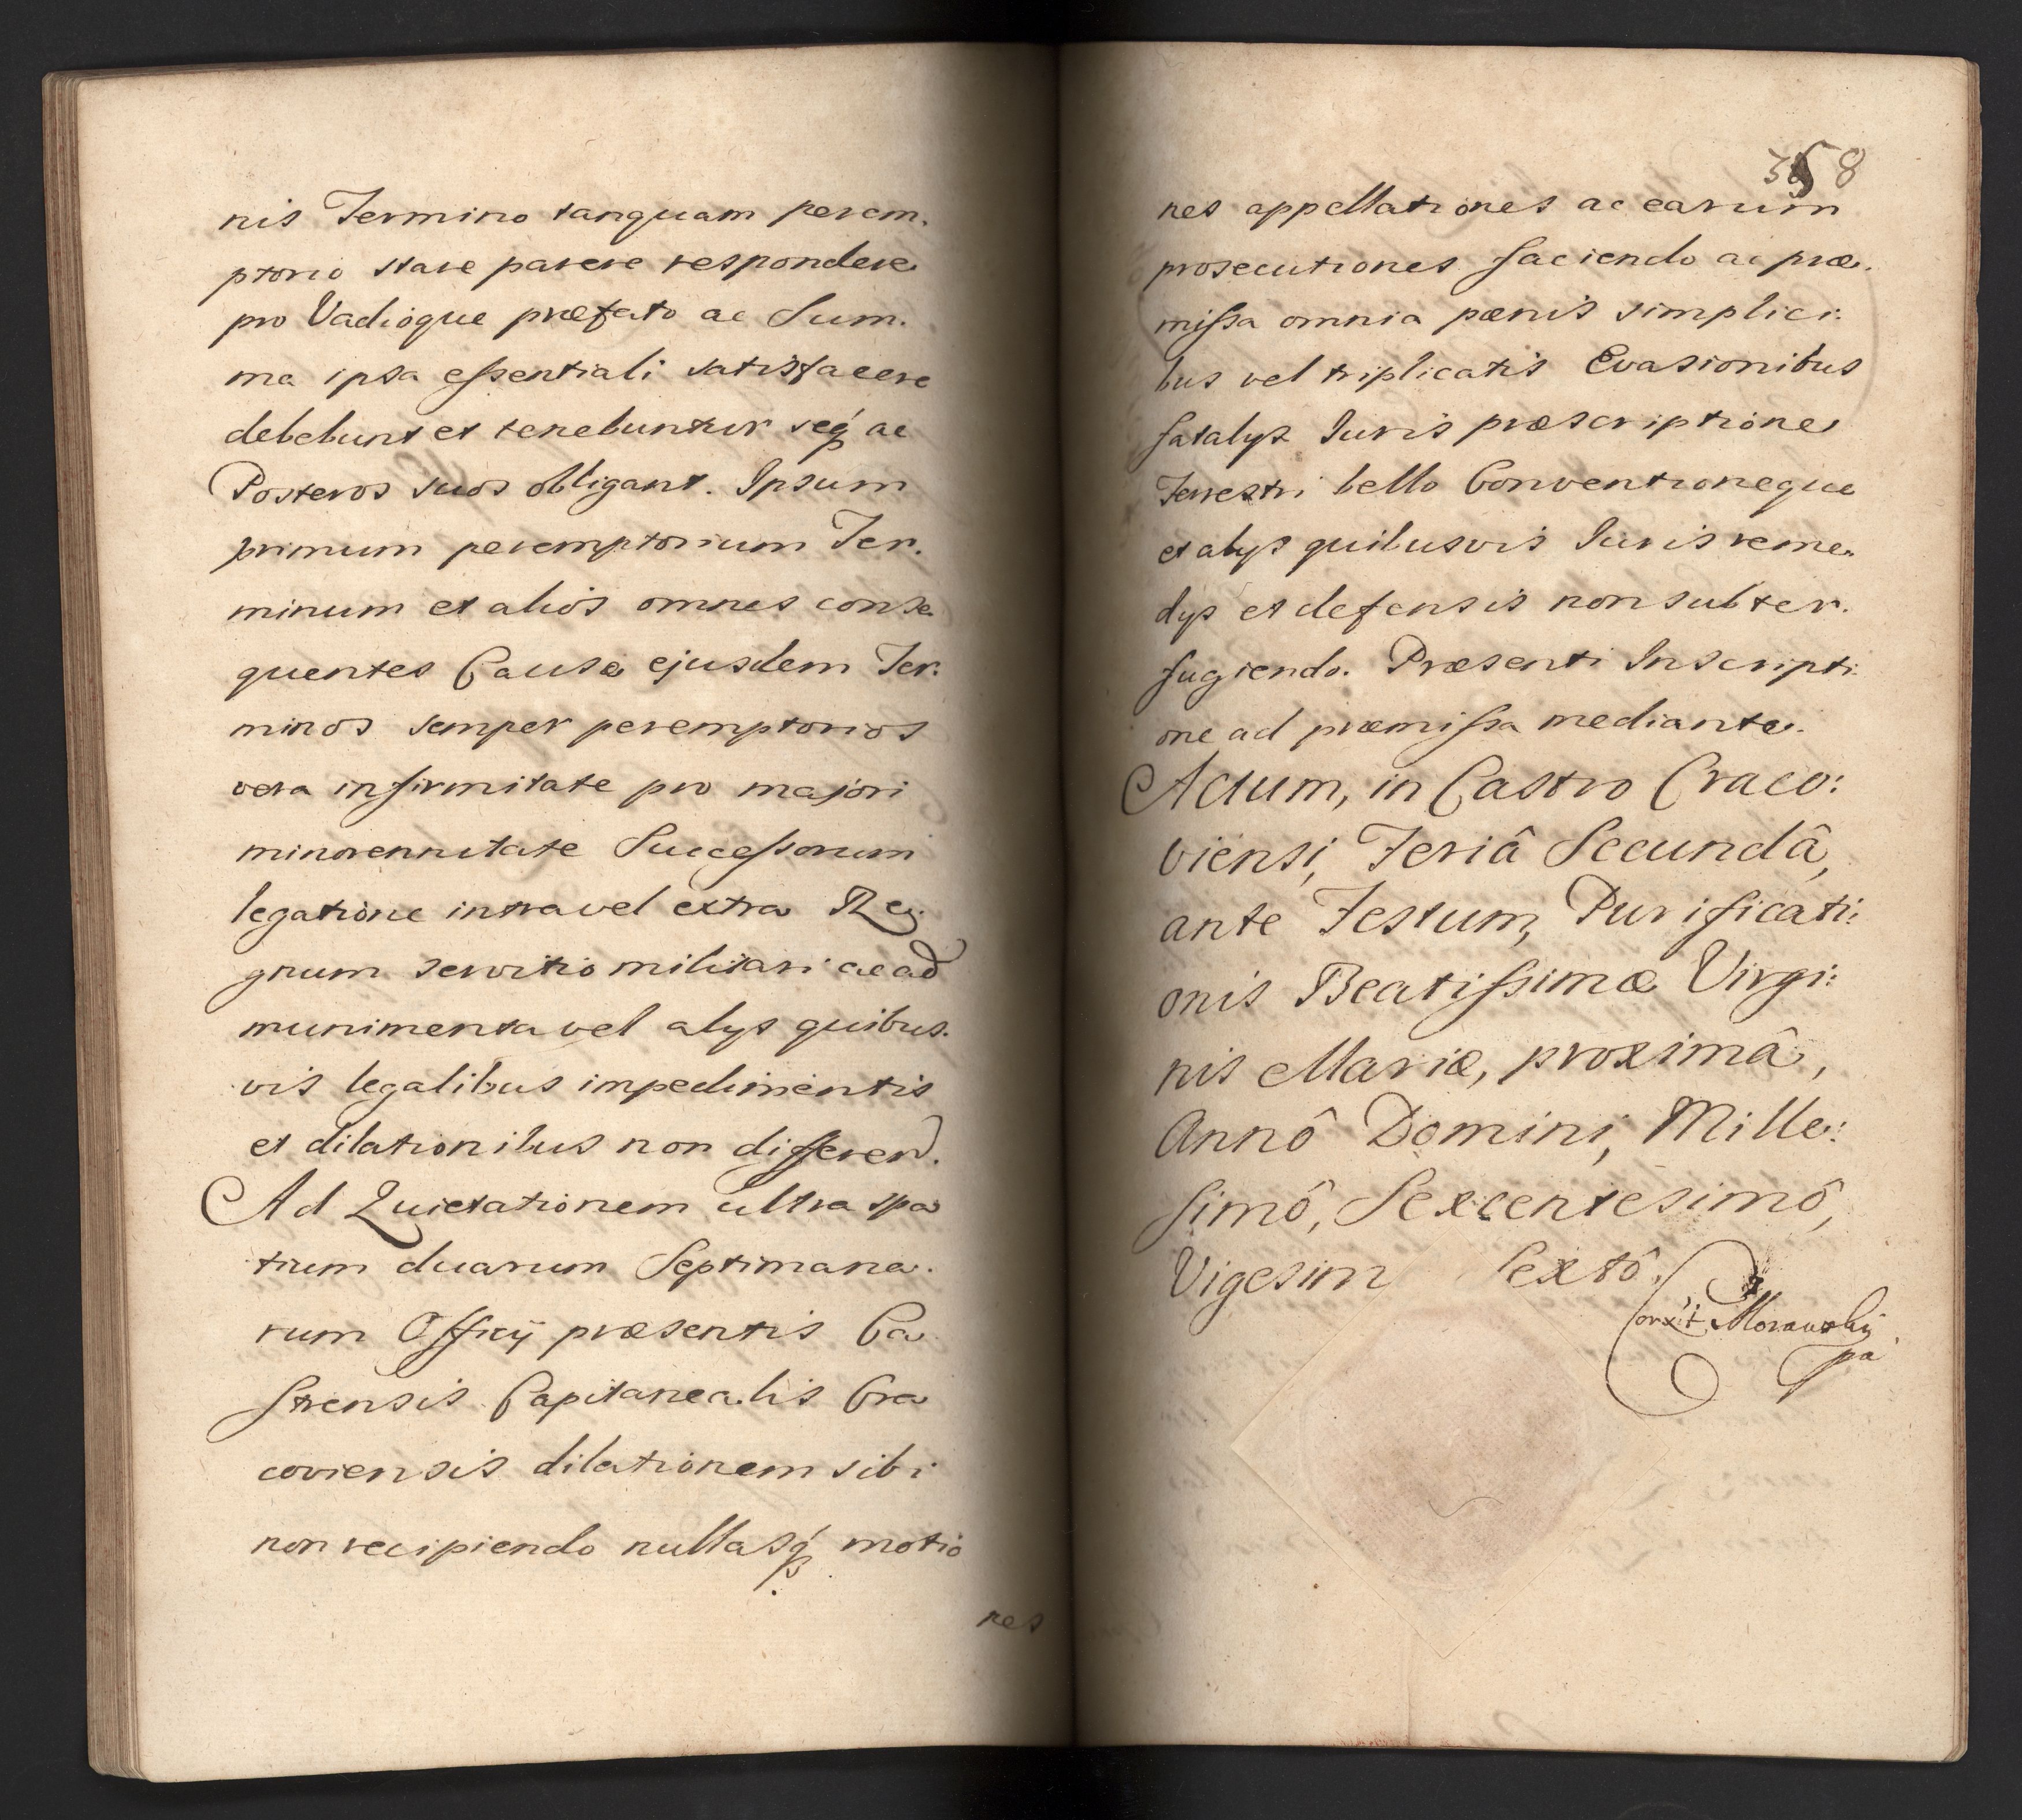 nis Termino tanquam perem.
ptorio stare parere respondere
pro Vadioque præfato ac Sum.
ma ipsa eſsentiali satisfacere
debebunt et tenebuntur seq́ ac
Posteros suos obligant. Ipsum
primum peremptorium Ter.
minum et alios omnes conse
quentes Causæ ejusdem Ter.
minos semper peremptorios
vera infirmitate pro majori
minorennitate Succeſsorum
legatione intra vel extra Re.
gnum servitio militari ac ad
munimenta vel alys quibus.
vis legalibus impedimentis
et dilationibus non differen.
Ad Quietationem ultra spa
tium duarum Septimana.
rum Officij præsentis Ca
strensis Capitanealis Cra
coviensis dilationem sibi
non recipiendo nullasq́ motio
nes
358
nes appellationes ac earum
prosecutiones faciendo ac præ.
miſsa omnia pænis simplici:
bus vel triplicatis Evasionibus
fatalys Iuris præscriptione
Terrestri bello Conventioneque
et alys quibusvis Iuris reme.
dys et defensis non subter.
fugiendo. Præsenti Inscripti:
one ad præmiſsa mediante.
Actum, in Castro Craco:
viensi, Feriâ Secundâ,
ante Festum, Purificati:
onis Beatiſsimæ Virgi:
nis Mariæ, proximâ,
Annô Domini, Mille:
simô, Sexcentesimô,
Vigesim Sextô.
Corxit Morawskij
pa